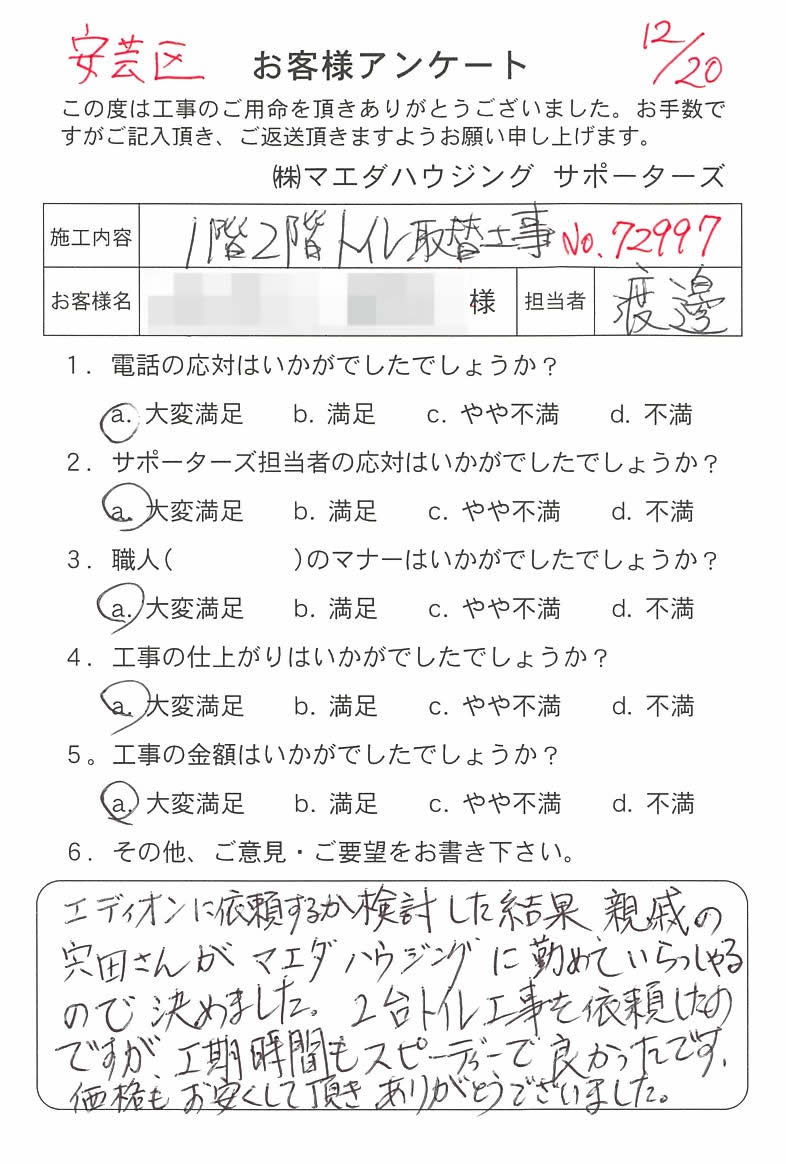 安芸区 お客様アンケート 12/20
この度は工事のご用命を頂きありがとうございました。お手数で
すがご記入頂き、ご返送頂きますようお願い申し上げます。
㈱マエダハウジング サポーターズ
施工内容 1階2階トイレ取替工事 No.72997
お客様名 様 担当者 渡邊
1. 電話の応対はいかがでしたでしょうか？
a. 大変満足 b. 満足 c. やや不満 d. 不満
2. サポーターズ担当者の応対はいかがでしたでしょうか？
a. 大変満足 b. 満足 c. やや不満 d. 不満
3. 職人( )のマナーはいかがでしたでしょうか？
a. 大変満足 b. 満足 c. やや不満 d. 不満
4. 工事の仕上がりはいかがでしたでしょうか？
a. 大変満足 b. 満足 c. やや不満 d. 不満
5。工事の金額はいかがでしたでしょうか？
a. 大変満足 b. 満足 c. やや不満 d. 不満
6. その他、ご意見・ご要望をお書き下さい。
エディオンに依頼するか検討した結果 親戚の
宍田さんが マエダハウジングに勤めていらっしゃる
ので 決めました。2台トイレ工事を依頼したの
ですが、工期時間もスピーディーで良かったです、
価格もお安くして頂きありがとうございました。